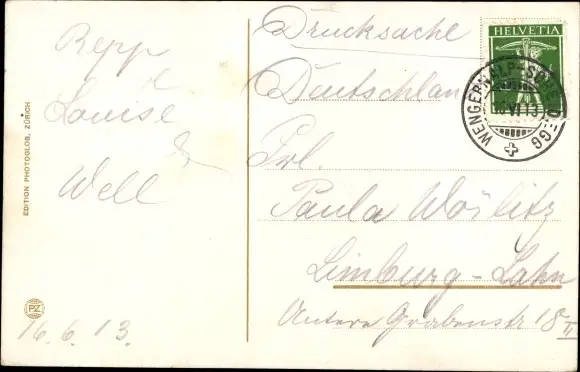 Repp
Louise
&
Well
16.6.13.
EDITION PHOTOGLOB, ZÜRICH
PZ
Drucksache
Deutschland
HELVETIA
WENGERNALP-SCHEIDEGG
VI 13
Frl.
Paula Wörlitz
Limburg-Lahn
Untere Grabenstr 18 II